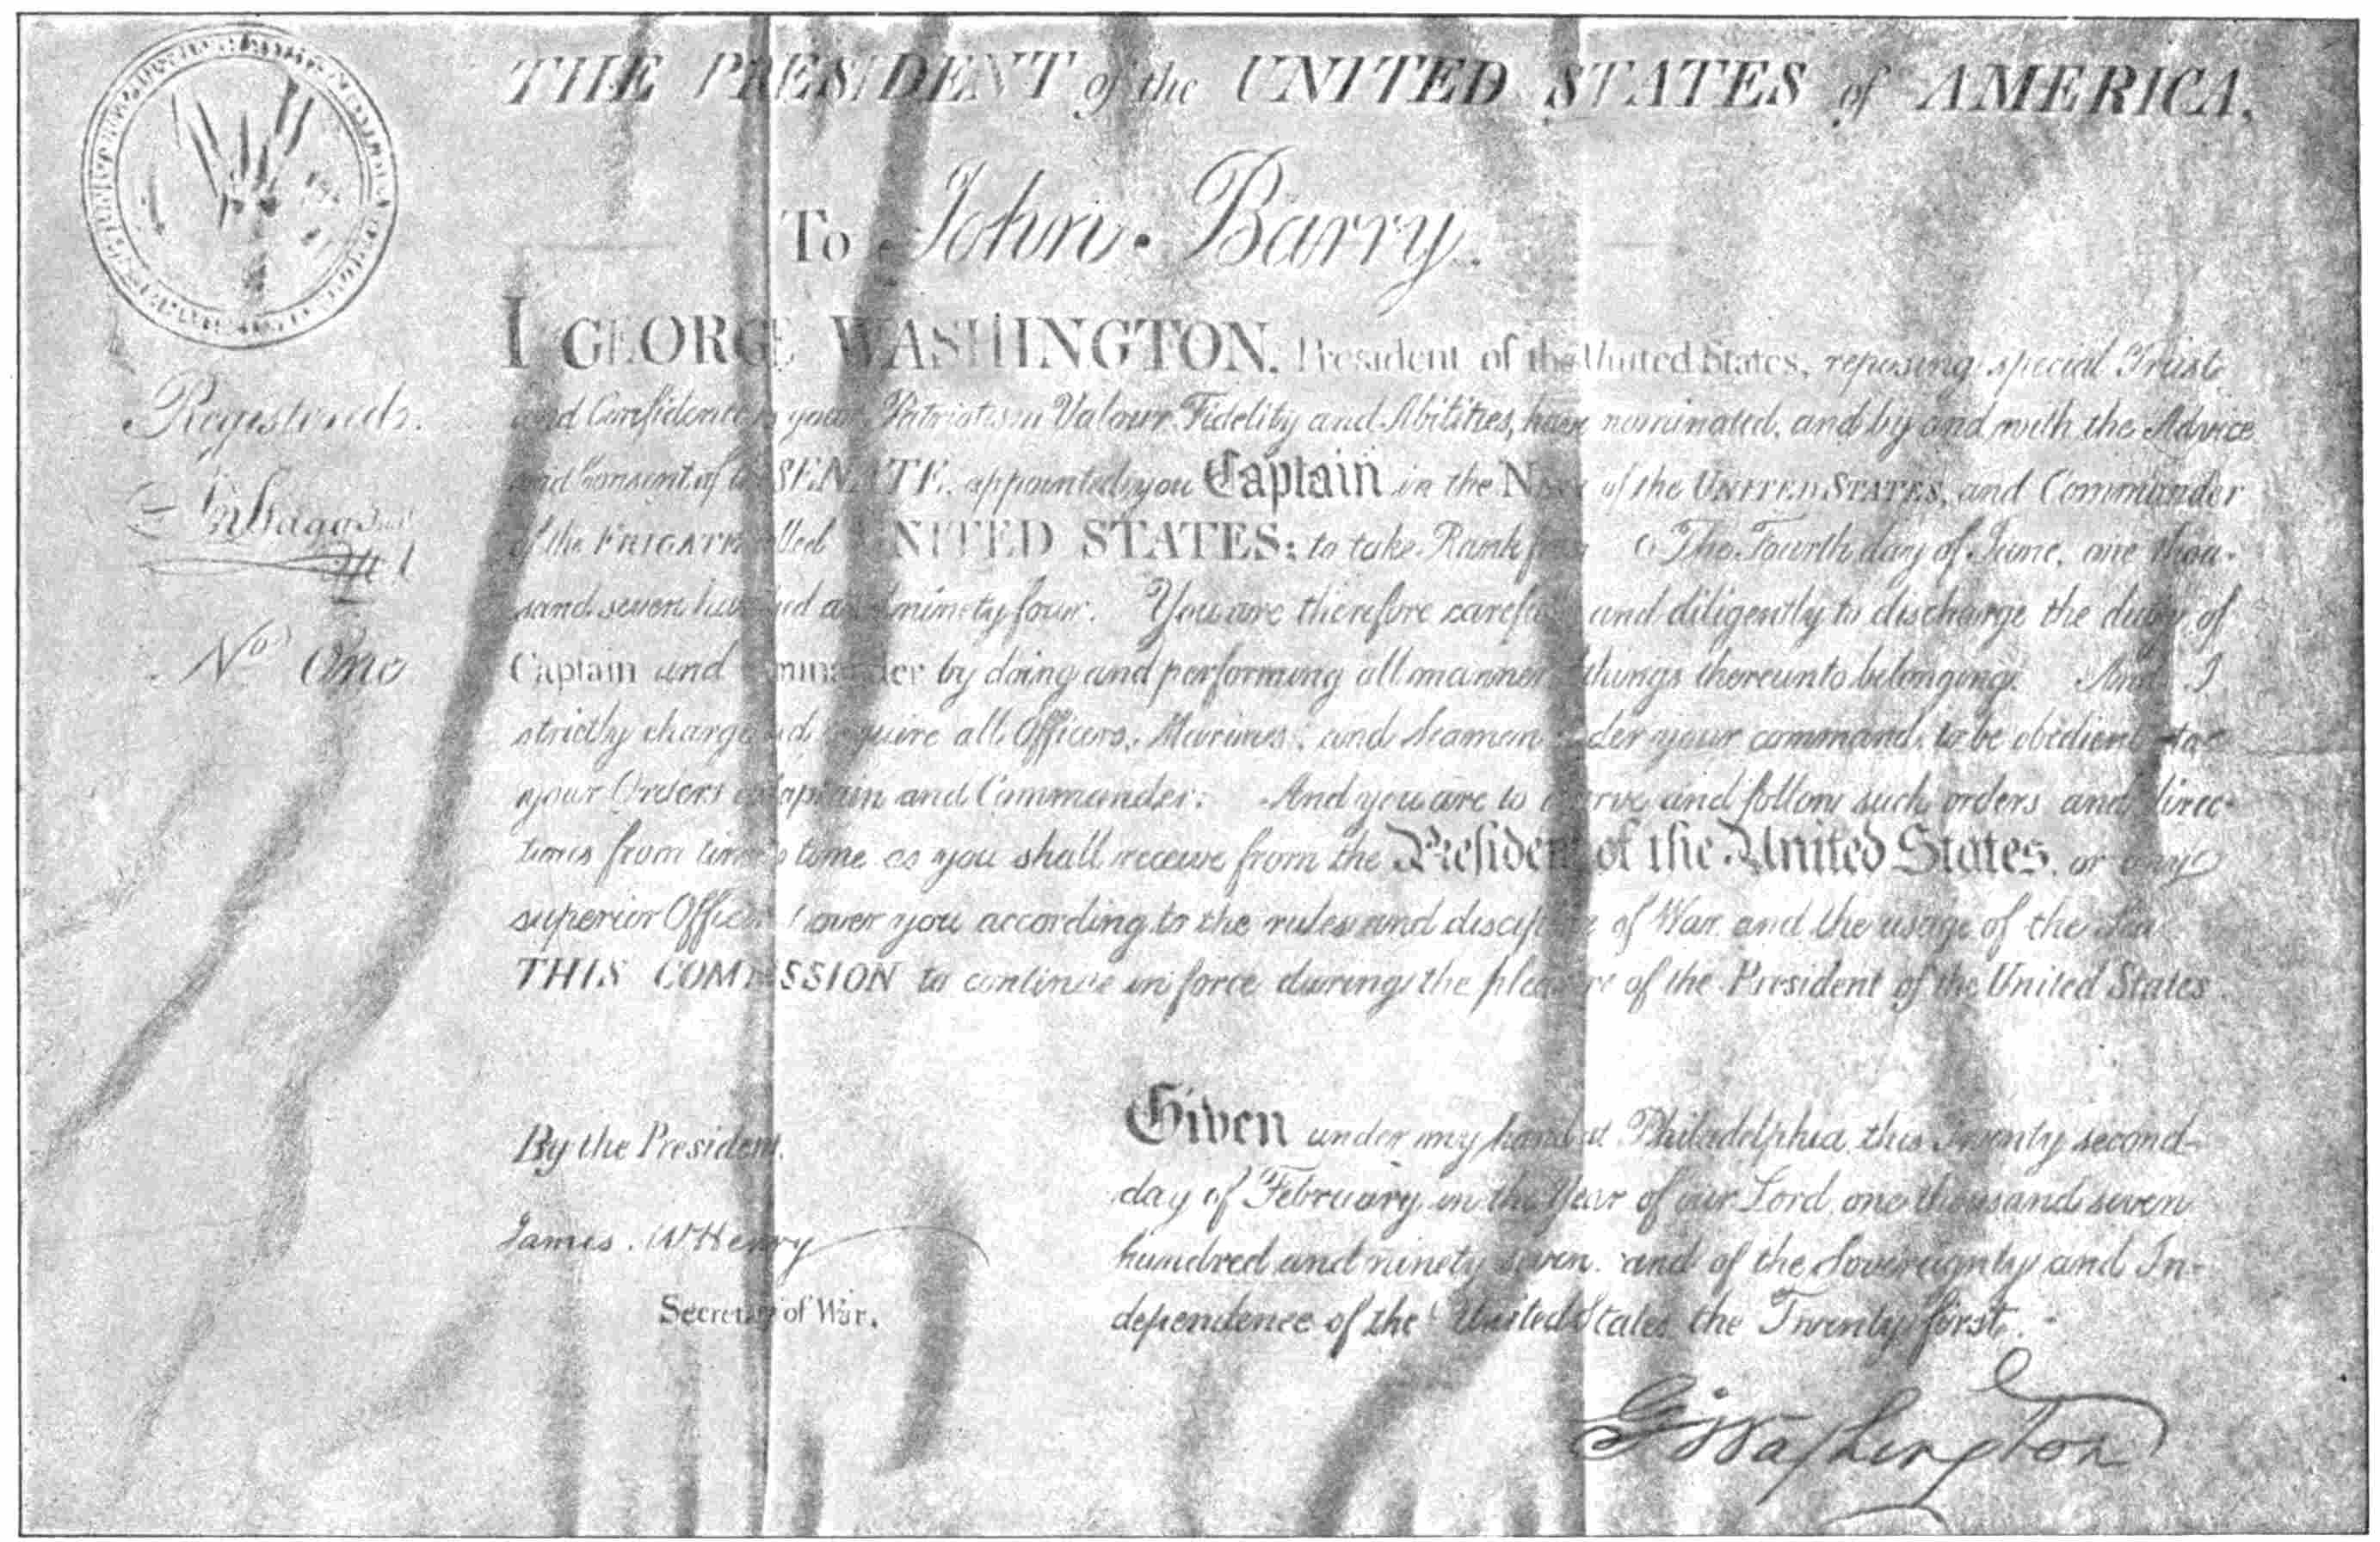 THE PRESIDENT of the UNITED STATES of AMERICA,
To John Barry.
I GEORGE WASHINGTON, President of the United States, reposing special Trust
and Confidence in your Patriotism Valour Fidelity and Abilities, have nominated, and by and with the Advice
and Consent of the SENATE, appointed you Captain in the Navy of the UNITED STATES, and Commander
of the FRIGATE called UNITED STATES: to take Rank from The Fourth day of June, one thou-
sand seven hundred and ninety four. You are therefore carefully and diligently to discharge the duty of
Captain and Commander by doing and performing all manner of things thereunto belonging. And I
strictly charge and require all Officers, Marines, and Seamen under your command, to be obedient to
your Orders as Captain and Commander: And you are to observe and follow such orders and direc-
tions from time to time as you shall receive from the President of the United States, or any
superior Officer over you according to the rules and discipline of War and the usage of the Sea
THIS COMMISSION to continue in force during the pleasure of the President of the United States.
Registered.
No. One
By the President.
James McHenry
Secretary of War.
Given under my hand at Philadelphia, this Twenty second
day of February, in the Year of our Lord one thousand seven
hundred and ninety seven. and of the Sovereignty and In-
dependence of the United States the Twenty first.
G Washington